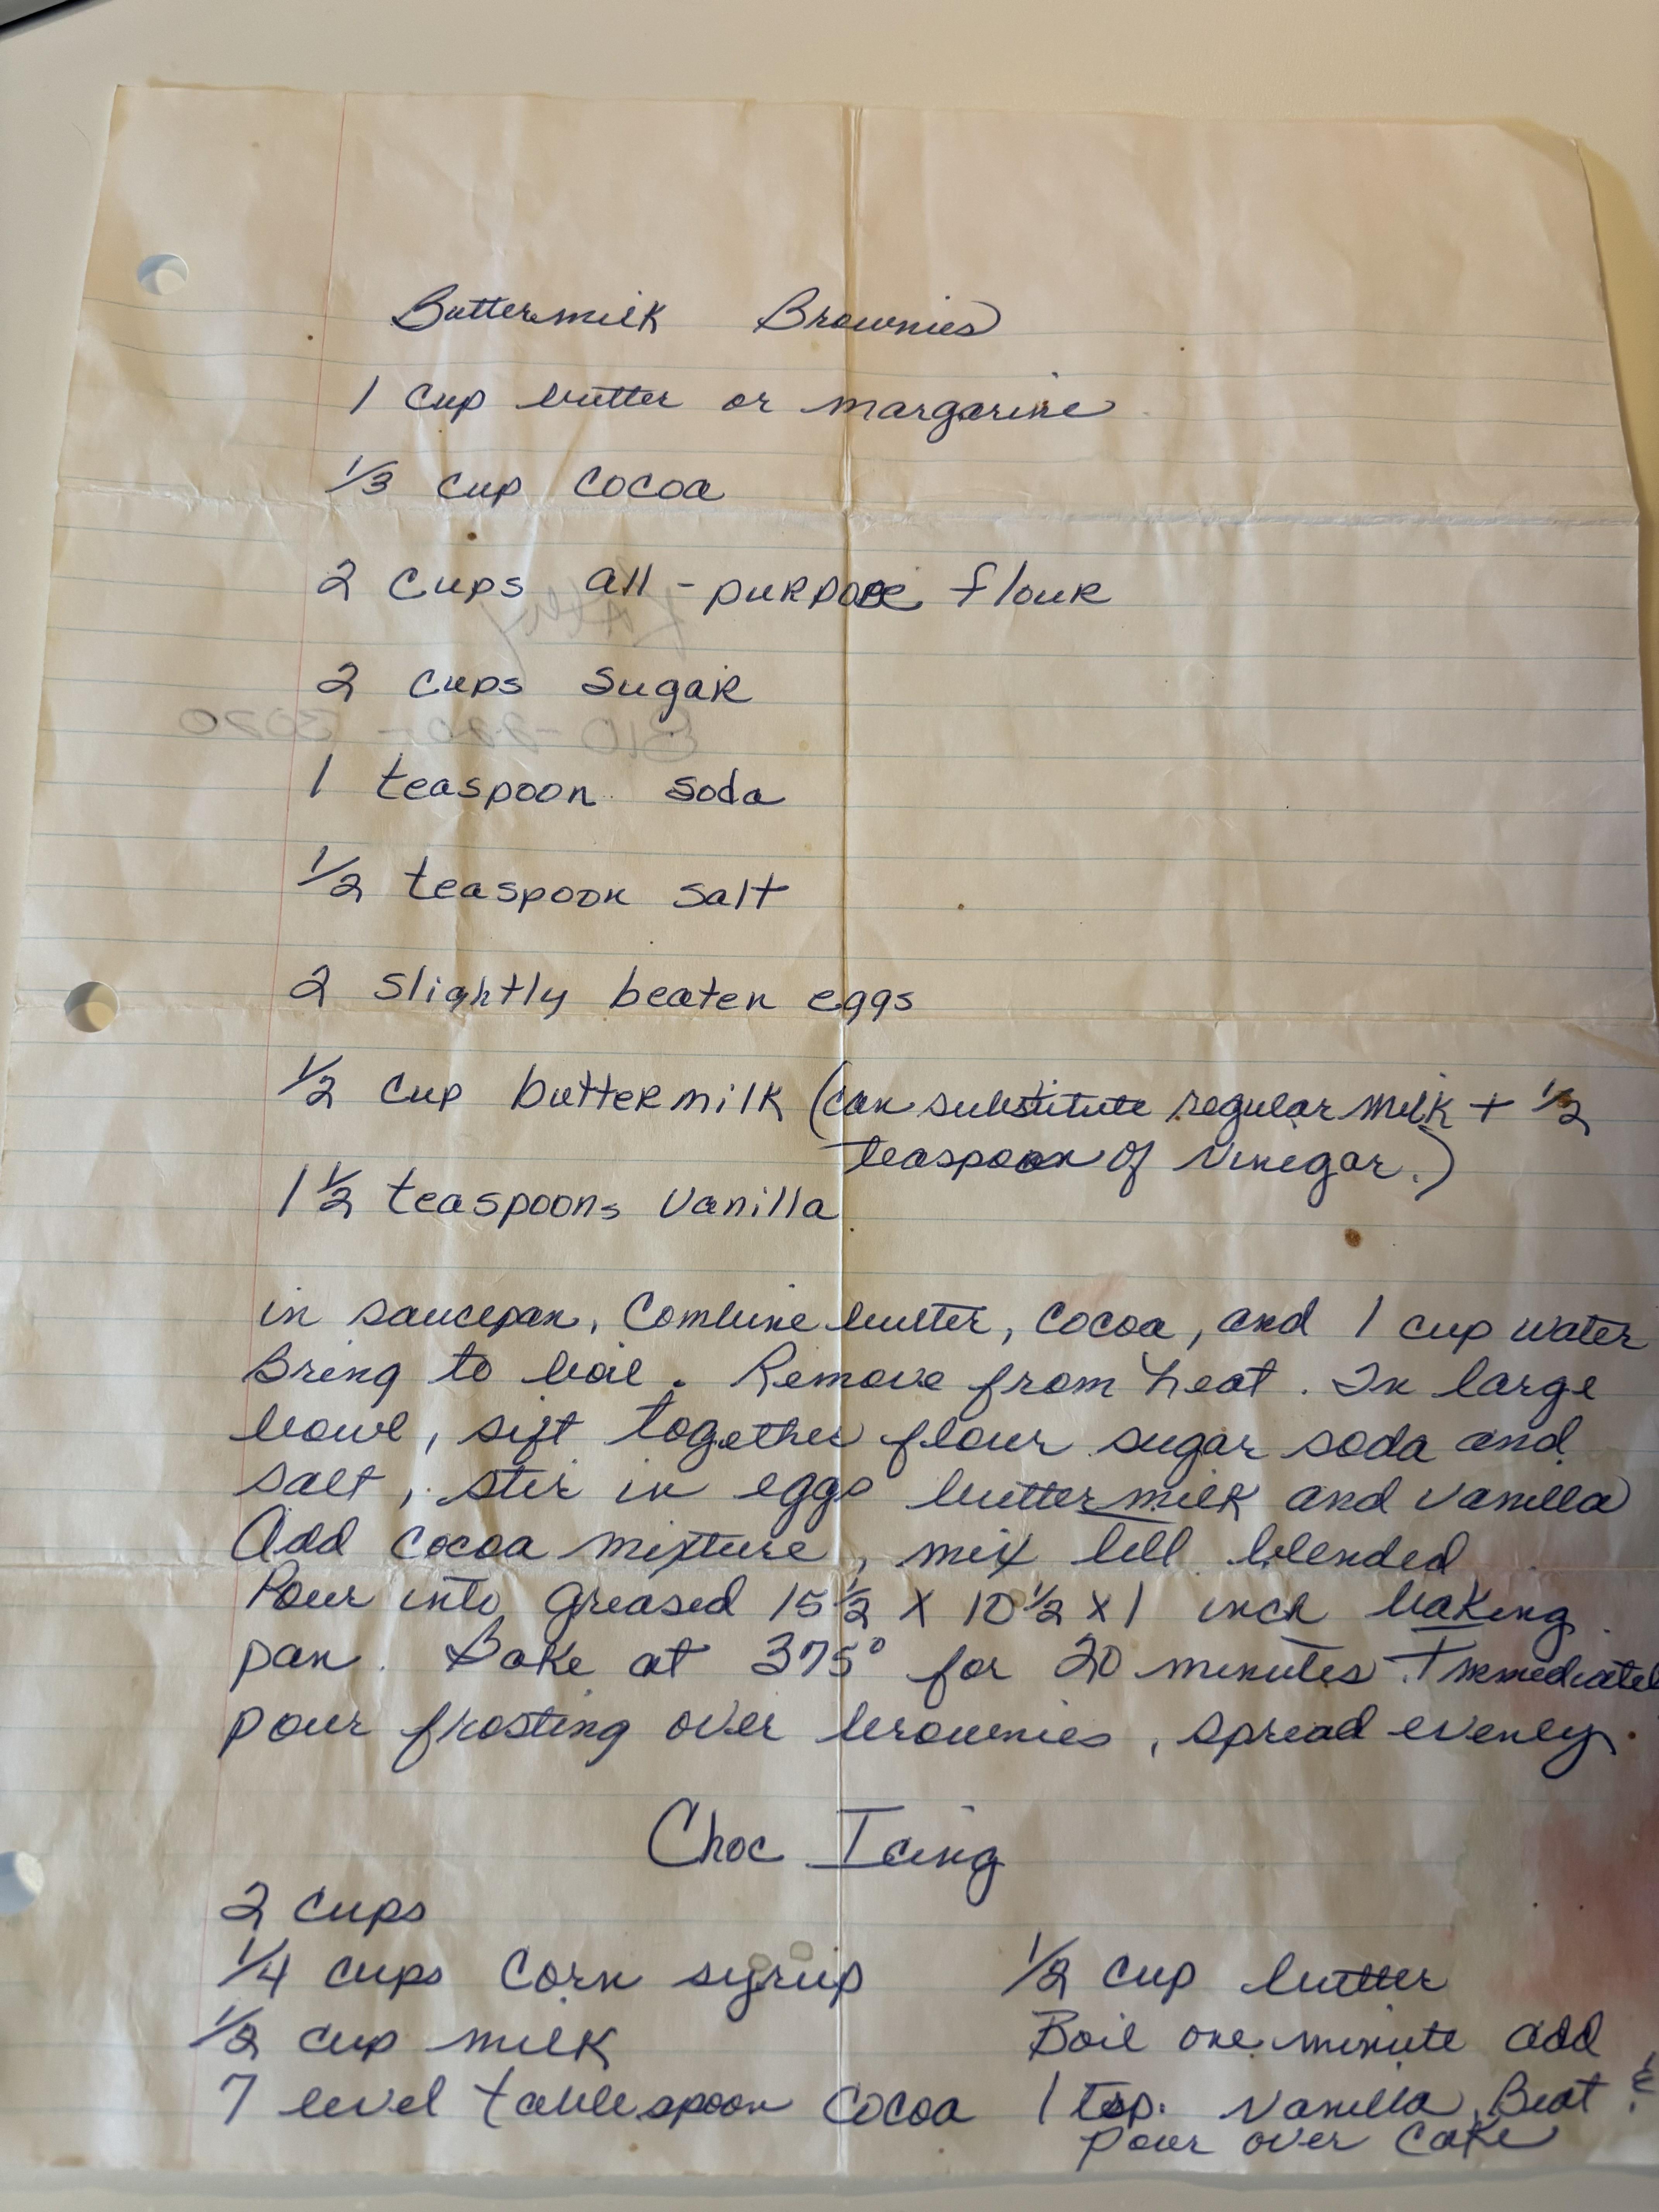 Buttermilk Brownies
1 cup butter or margarine
1/3 cup cocoa
2 cups all-purpose flour
2 cups sugar
1 teaspoon soda
1/2 teaspoon salt
2 slightly beaten eggs
1/2 cup buttermilk (can substitute regular milk + 1/2
teaspoon of vinegar.)
1 1/2 teaspoons vanilla
in saucepan, Combine butter, cocoa, and 1 cup water
Bring to boil. Remove from heat. In large
bowl, sift together flour sugar soda and
salt, stir in eggs buttermilk and vanilla
Add cocoa mixture, mix till blended
Pour into greased 15 1/2 x 10 1/2 x 1 inch baking
pan. Bake at 375° for 20 minutes. Immediatel
pour frosting over brownies, spread evenly.
Choc Icing
2 cups
1/4 cups corn syrup
1/2 cup milk
7 level tablespoon cocoa
1/2 cup butter
Boil one minute add
1 tsp. vanilla. Beat &
pour over cake